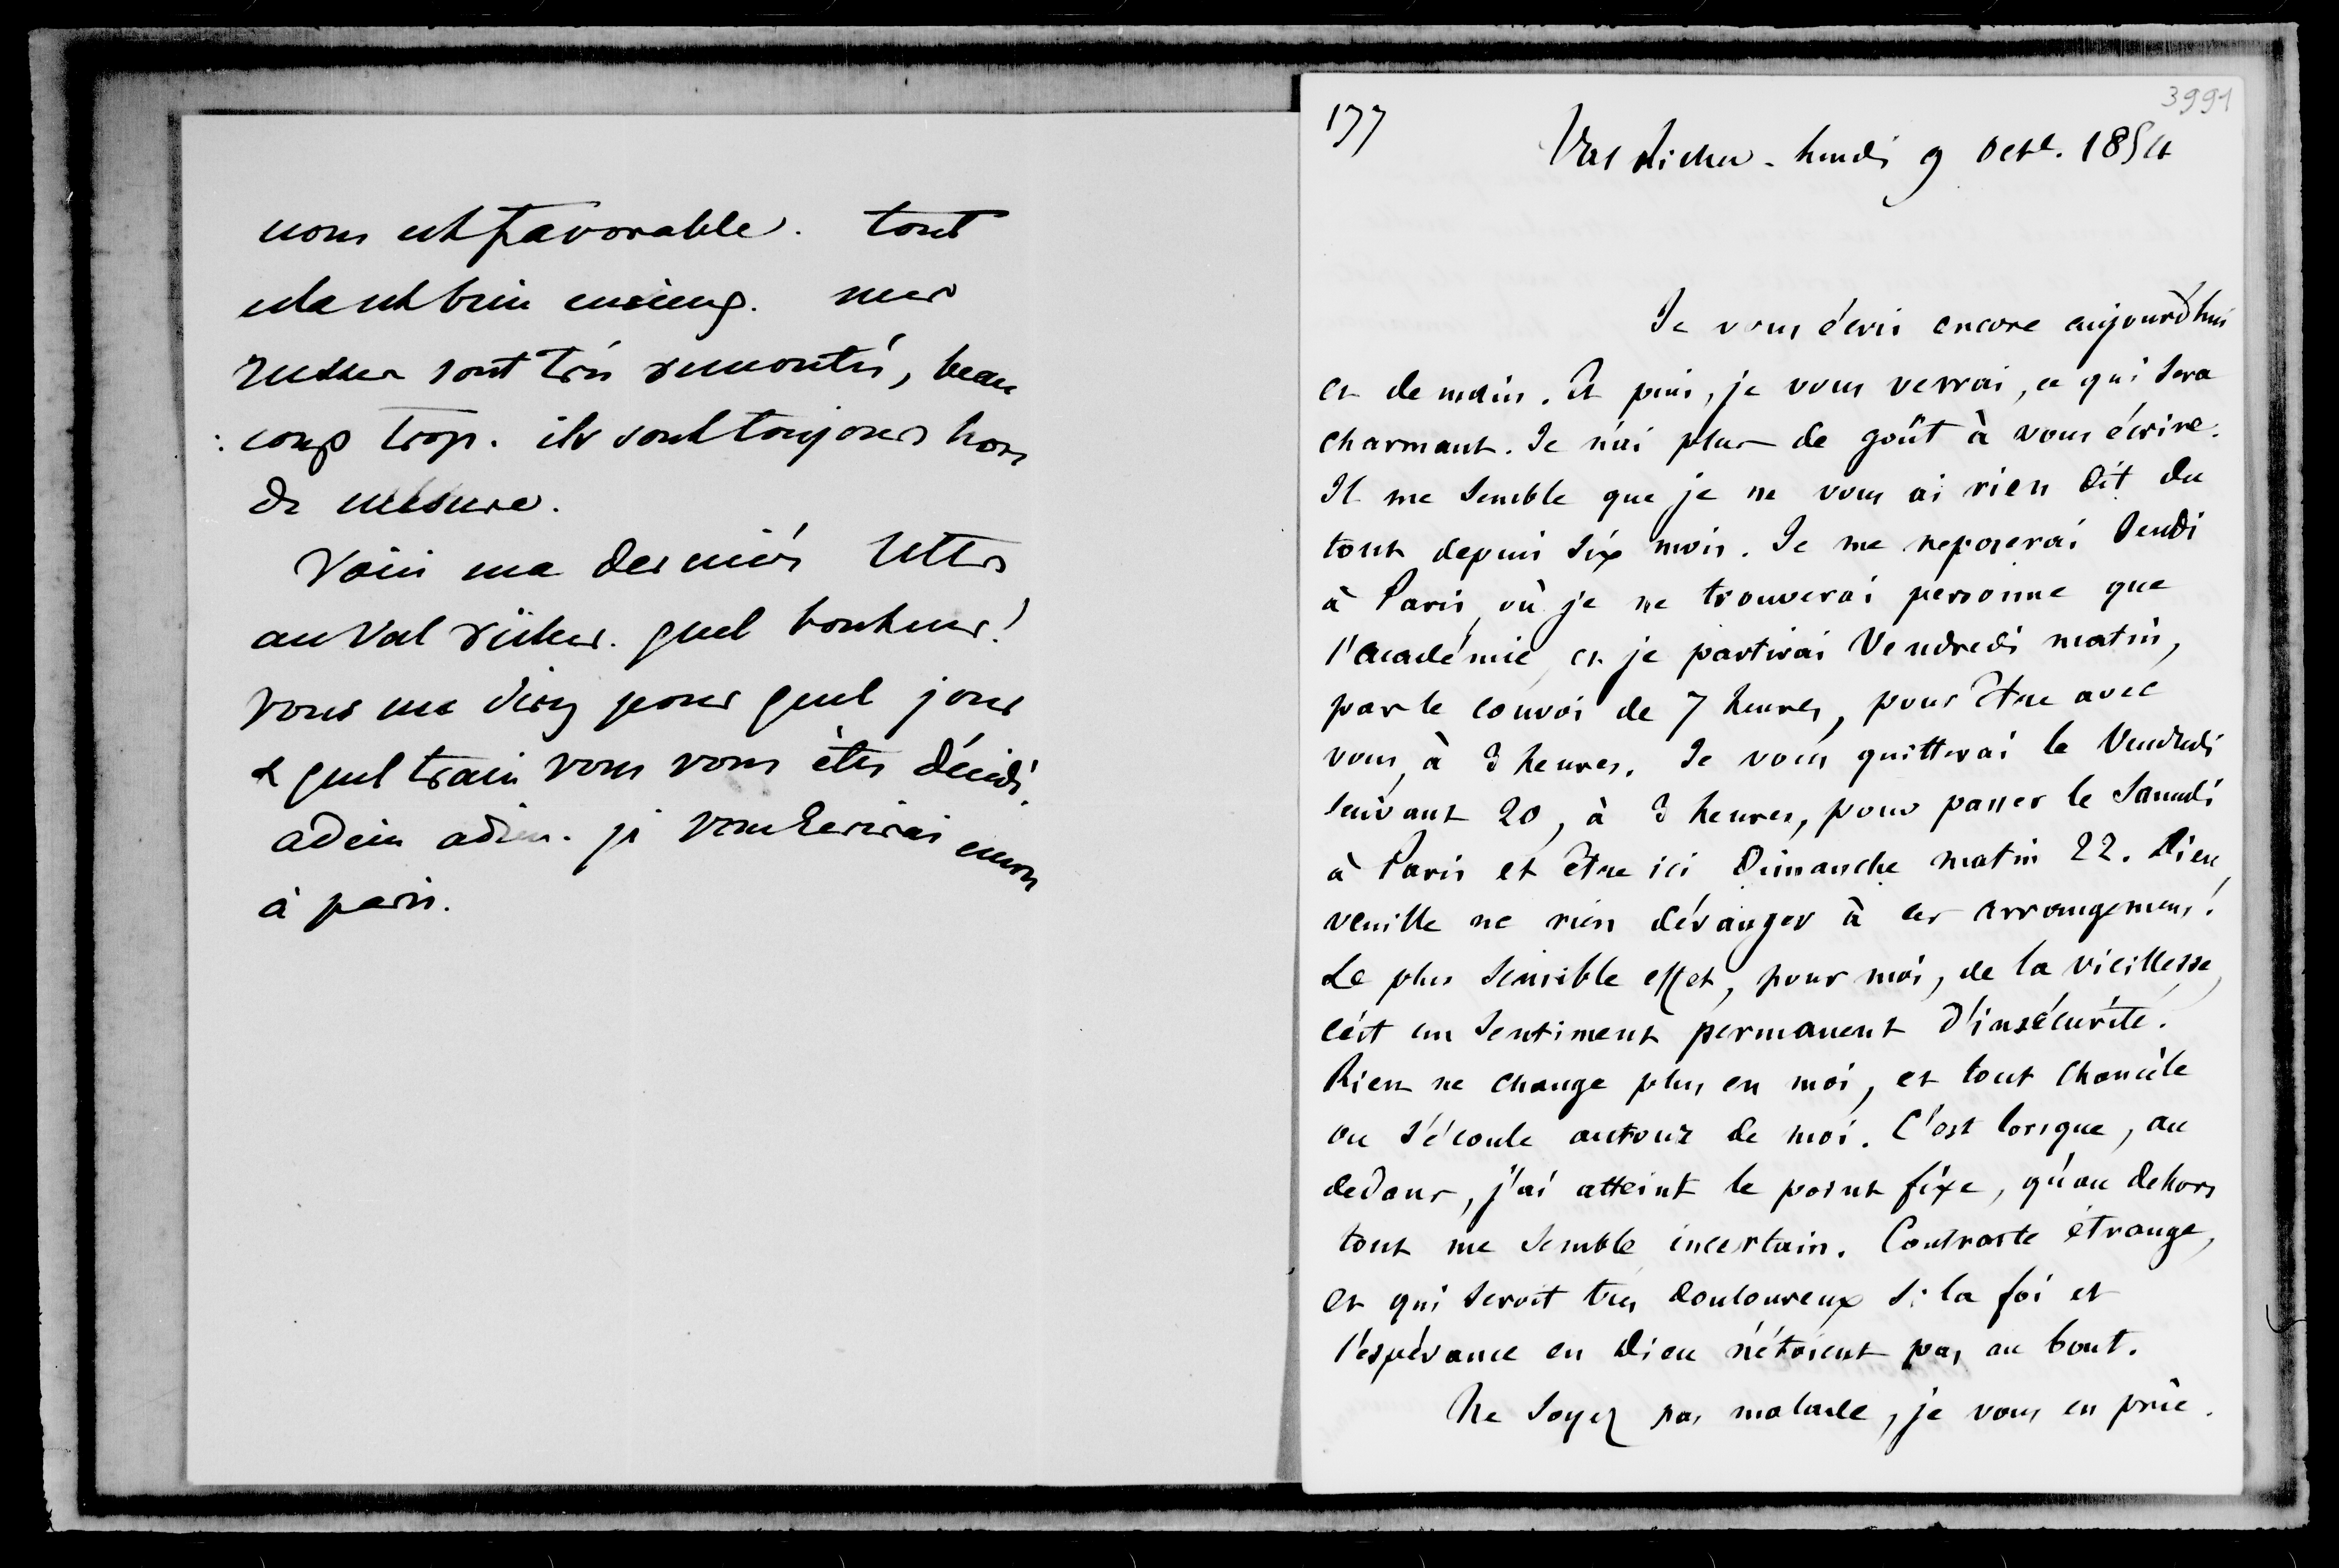 nous est favorable. tout
cela est bien curieux. mes
russes sont très remontés, beau
: coup trop. ils sont toujours hors
de mesure.
Voici ma dernière lettre
au Val richer. quel bonheur!
vous me direz pour quel jour
& quel train vous vous êtes décidé.
adieu adieu. je vous écrirai encore
à paris.
177
3991
Val Richer - Lundi 9 Octe. 1854
Je vous écris encore aujourd'hui
et demain. Et puis, je vous verrai, ce qui sera
charmant. Je n'ai plus de goût à vous écrire.
Il me semble que je ne vous ai rien dit du
tout depuis six mois. Je me reposerai Jeudi
à Paris, où je ne trouverai personne que
l'académie, et je partirai Vendredi matin,
par le convoi de 7 heures, pour être avec
vous, à 3 heures. Je vous quitterai le Vendredi
suivant 20, à 3 heures, pour passer le Samedi
à Paris et être ici Dimanche matin 22. Dieu
veuille ne rien déranger à ces arrangemens!
Le plus sensible effet, pour moi, de la vieillesse,
c'est un sentiment permanent d'insécurité.
Rien ne change plus en moi, et tout chancèle
ou s'écoule autour de moi. C'est lorsque, au
dedans, j'ai atteint le point fixe, qu'au dehors
tout me semble incertain. Contraste étrange,
et qui seroit très douloureux si la foi et
l'espérance en Dieu n'étoient pas au bout.
Ne soyez pas malade, je vous en prie.